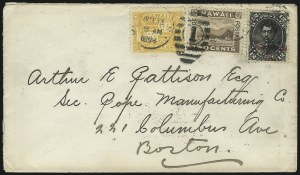 HAWAII
CENTS
Arthur E Pattison Esq
Sec. Pope Manufacturing Co
221 Columbus Ave
Boston.